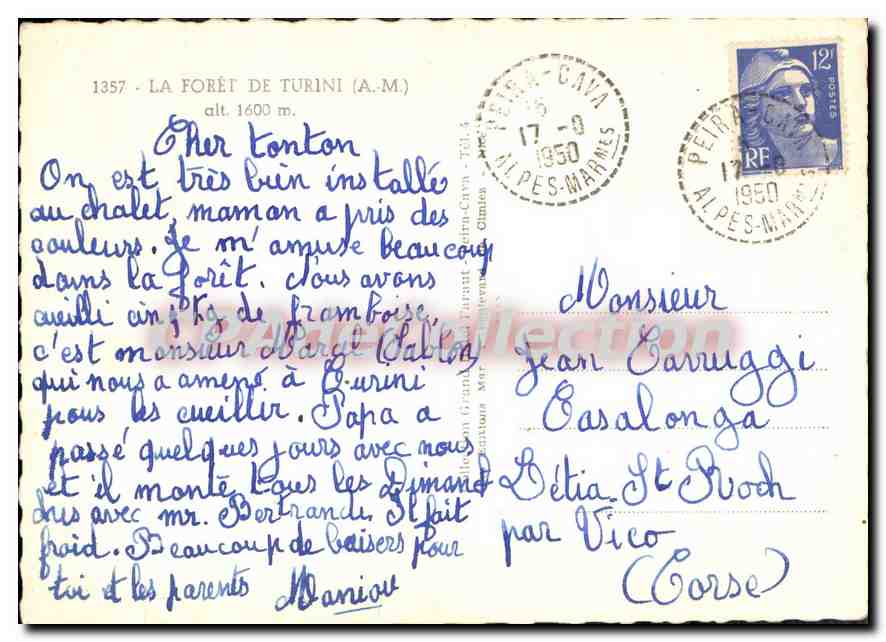 1357 - LA FORÊT DE TURINI (A.-M.)
alt. 1600 m.
Cher tonton
On est très bien installé
au chalet, maman a pris des
couleurs. Je m'amuse beaucoup
dans la forêt. Nous avons
cueilli cinq kg de framboise,
c'est monsieur (Sablon)
qui nous a amené à Turini
pour les cueillir. Papa a
passé quelques jours avec nous
et il monte tous les Dimand
ches avec mr. Bertrand. Il fait
froid. Beaucoup de baisers pour
toi et les parents Maniou
PEIRA-CAVA
17 -8
1950
ALPES-MARMES
12F
POSTES
RF
PEIRA-CAVA
17 -8
1950
ALPES-MARMES
Monsieur
Jean Carruggi
Casalonga
Létia St Roch
par Vico
(Corse)